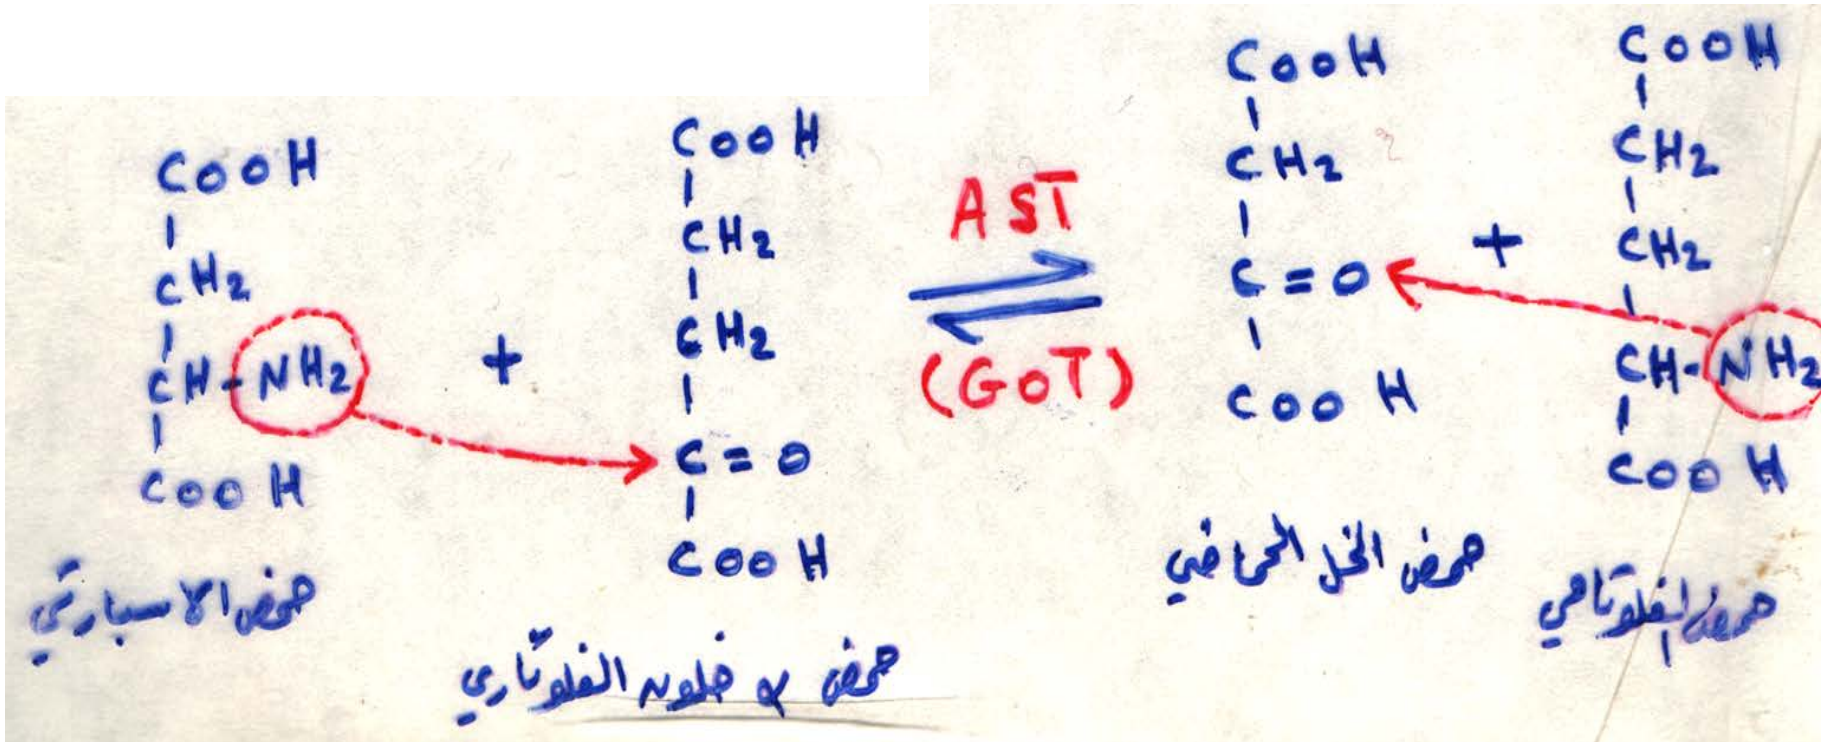 COOH
CH2
CH-NH2
COOH
حمض الاسبارتي
+
COOH
CH2
CH2
C=O
COOH
حمض α خلون الغلوتاري
AST
(GOT)
COOH
CH2
C=O
COOH
حمض الخل الحماضي
+
COOH
CH2
CH2
CH-NH2
COOH
حمض الغلوتامي